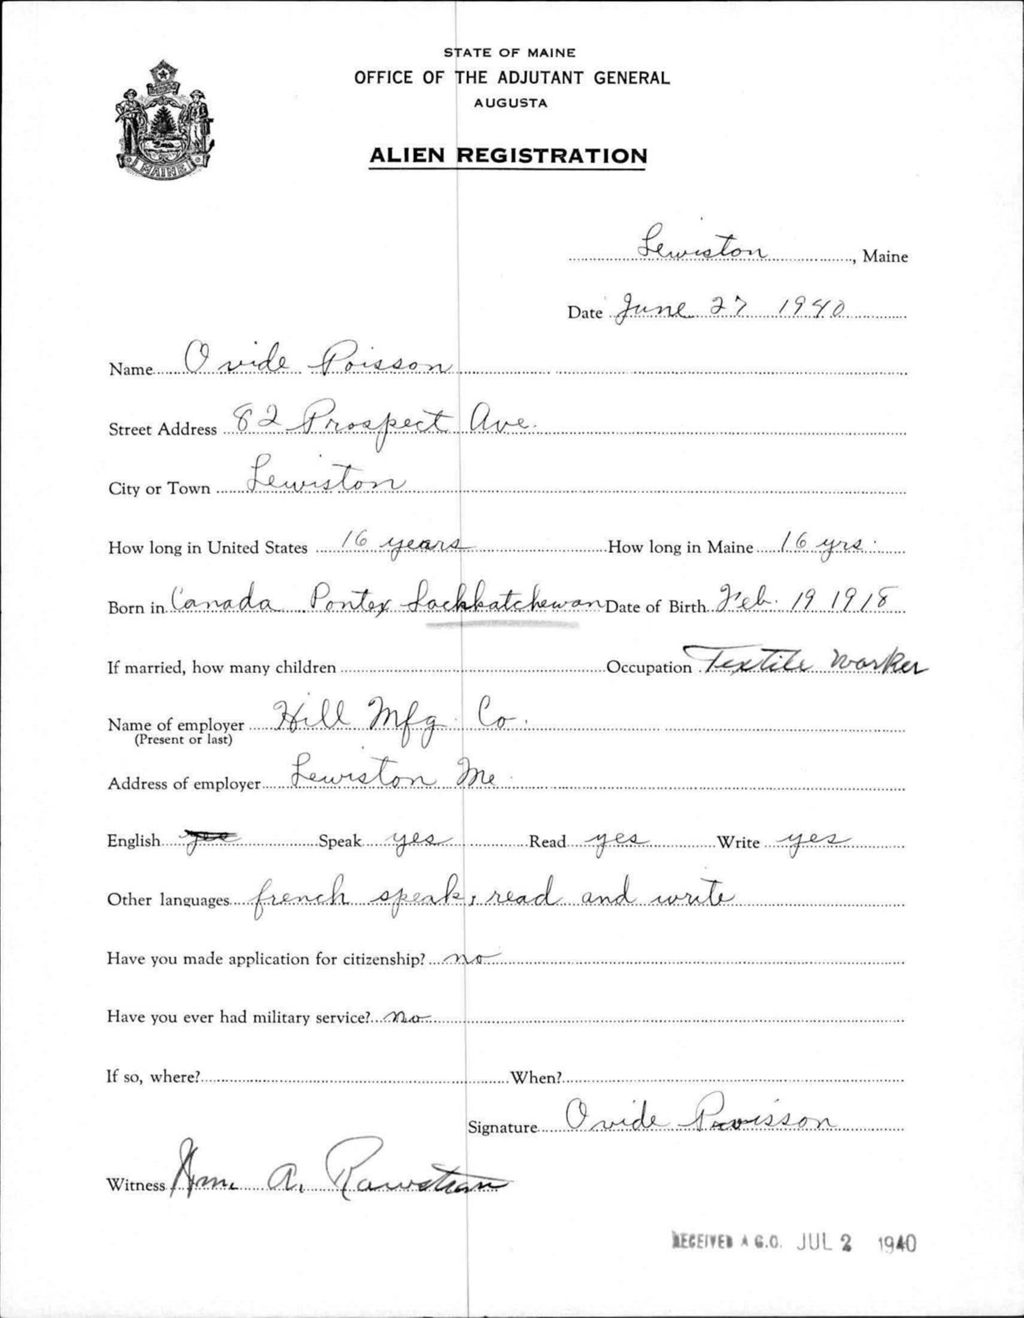 STATE OF MAINE
OFFICE OF THE ADJUTANT GENERAL
AUGUSTA
ALIEN REGISTRATION
MAINE
Lewiston, Maine
Date June 27 1940
Name Ovide Poisson
Street Address 82 Prospect Ave.
City or Town Lewiston
How long in United States 16 years How long in Maine 16 yrs.
Born in Canada Pontex Sackkatchewan Date of Birth Feb. 19 1918
If married, how many children Occupation Textile Worker
Name of employer Hill Mfg. Co.
(Present or last)
Address of employer Lewiston Me.
English Speak yes Read yes Write yes
Other languages french speak, read and write
Have you made application for citizenship? no
Have you ever had military service? no
If so, where? When?
Signature Ovide Poisson
Witness Wm. A.
RECEIVED A.G.O. JUL 2 1940